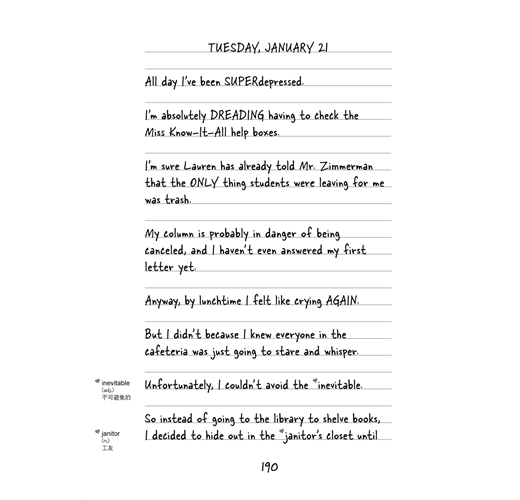 TUESDAY, JANUARY 21
All day I've been SUPERdepressed.
I'm absolutely DREADING having to check the
Miss Know-It-All help boxes.
I'm sure Lauren has already told Mr. Zimmerman
that the ONLY thing students were leaving for me
was trash.
My column is probably in danger of being
canceled, and I haven't even answered my first
letter yet.
Anyway, by lunchtime I felt like crying AGAIN.
But I didn't because I knew everyone in the
cafeteria was just going to stare and whisper.
inevitable
(adj.)
不可避免的
Unfortunately, I couldn't avoid the inevitable.
So instead of going to the library to shelve books,
janitor
(n.)
工友
I decided to hide out in the janitor's closet until
190